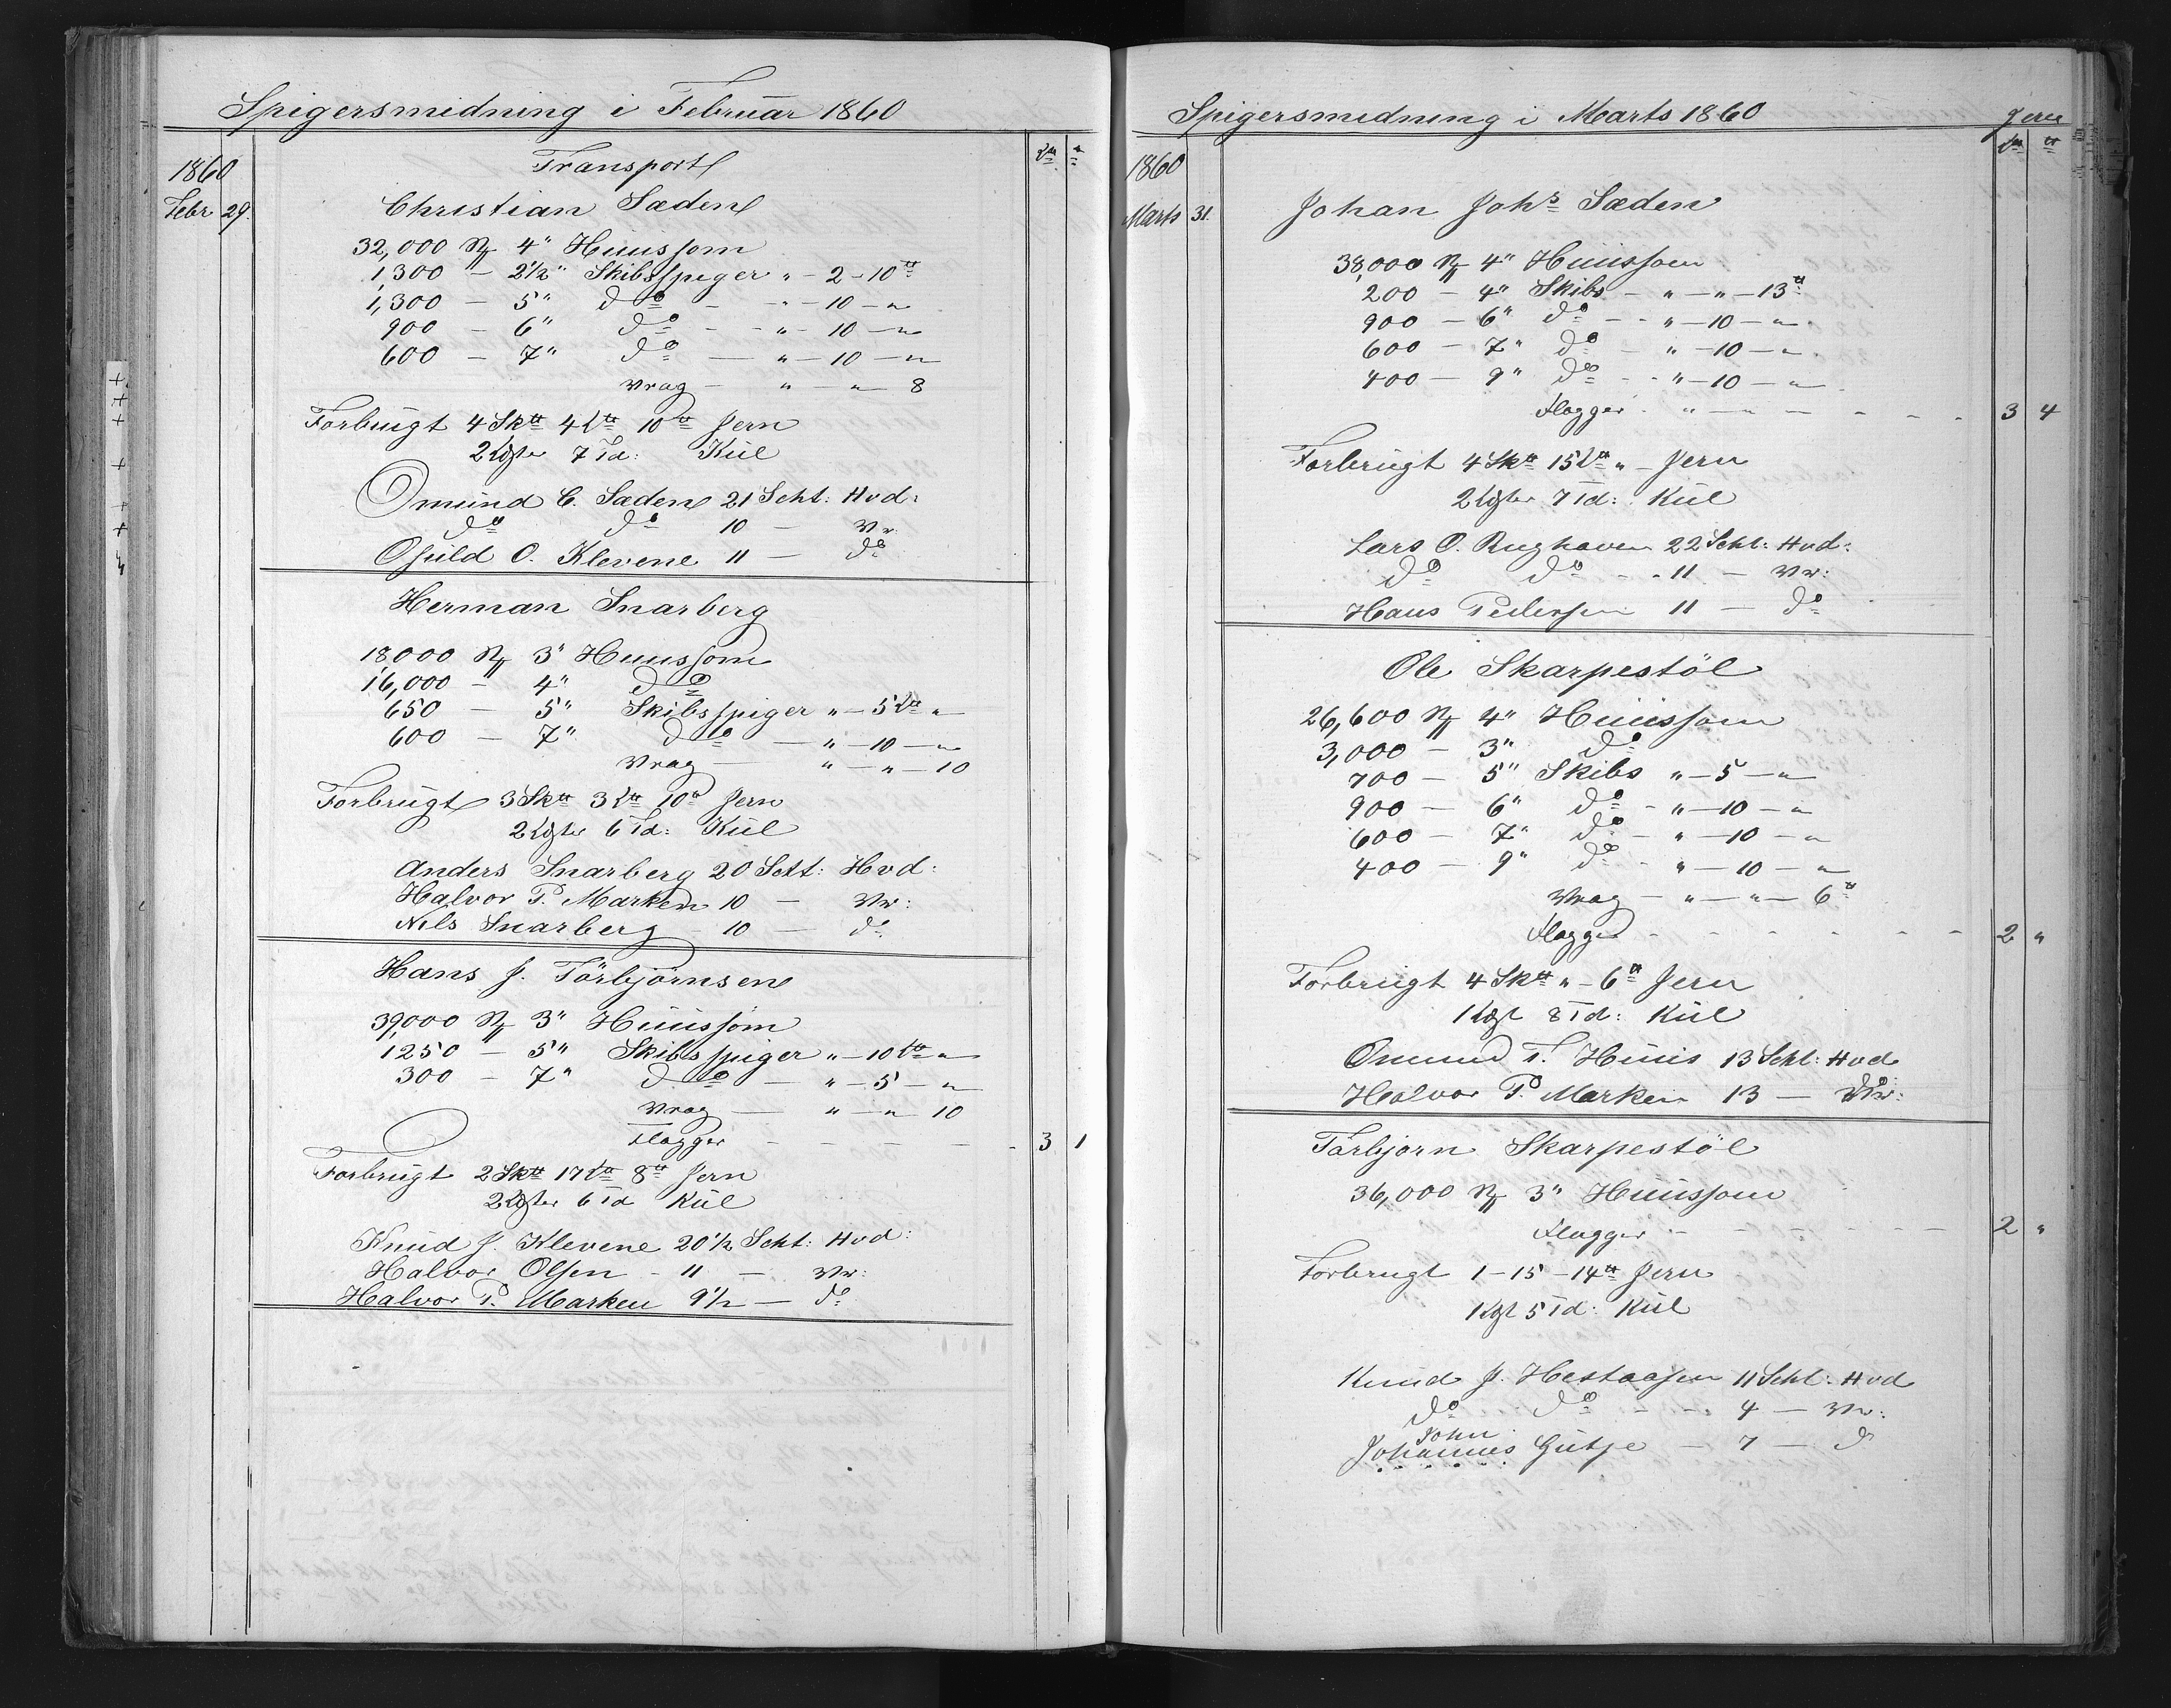 Spigersmidning i Februar 1860
L℔ ℔
1860 Transport
Febr 29. Christian Sæden
32,000 N 4" Huussøm
1,300 — 2½" Skibsspiger " - 2 - 10 ℔
1,300 — 5" do — " - 10 - "
900 — 6" do — " - 10 - "
600 — 7" do — " - 10 - "
Vrag — " - " 8
Forbrugt 4 Sk℔ 4 L℔ 10 ℔ Jern
2 Lgter 7 Td: Kul
Omund C. Sæden 21 Scht: Hvd:
do do 10 — Vr:
Osuld O. Klevene 11 — do
Herman Snarberg
18000 N 3" Huussøm
16,000 — 4" do
650 — 5" Skibsspiger " - 5 L℔ "
600 — 7" do — " - 10 - "
Vrag — " - " - 10
Forbrugt 3 Sk℔ 3 L℔ 10 ℔ Jern
2 Lgter 6 Td: Kul
Anders Snarberg 20 Sctt: Hvd:
Halvor P. Marken 10 — Vr:
Nils Snarberg — 10 — do
Hans J. Törbjörnsen
39,000 N 3" Huussøm
1250 — 5" Skibsspiger " - 10 L℔ "
300 — 7" do — " - 5 - "
Vrag — " - " 10
Flagger - - - - - 3 1
Forbrugt 2 Sk℔ 17 L℔ 8 ℔ Jern
2 Lgter 6 Td Kul
Knud J. Klevene 20½ Scht: Hvd:
Halvor Olsen - 11 — Vr:
Halvor P. Marken 9½ — do
Spigersmidning i Marts 1860 Jern
L℔ ℔
1860
Marts 31. Johan Johs Sæden
38,000 N 4" Huussøm
200 — 4" Skibs — " - " - 13 ℔
900 — 6" do - - " - 10 - "
600 — 7" do — " - 10 - "
400 — 9" do - - " - 10 - "
Flagger " - " - - - - 3 4
Forbrugt 4 Sk℔ 15 L℔ " - Jern
2 Lgter 7 Td: Kul
Lars O. Rughaven 22 Scht: Hvd:
do do - - 11 — Vr:
Hans Pedersen 11 — do
Ole Skarpestöl
26,600 N 4" Huussøm
3,000 — 3" do
700 — 5" Skibs " - 5 - "
900 — 6" do - " - 10 - "
600 — 7" do - " - 10 - "
400 — 9" do - " - 10 - "
Vrag — " - " - 6 ℔
Flagger - - - - - - - 2 "
Forbrugt 4 Sk℔ " - 6 ℔ Jern
1 Lgt 8 Td: Kul
Omund T. Huus 13 Scht: Hvd
Halvor P. Marken 13 — Vr:
Törbjörn Skarpestöl
36,000 N 3" Huussøm
Flagger - - - - - - - 2 "
Forbrugt 1 - 15 - 14 ℔ Jern
1 Lgt 5 Td: Kul
Knud J. Hestaasen 11 Scht: Hvd
do do - - 4 — Vr:
John
Johannes Gutse — 7 — do